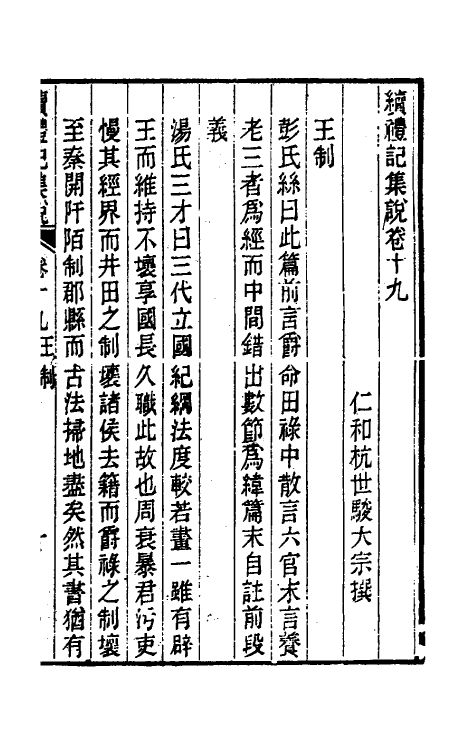 續禮記集說卷十九
仁和杭世駿大宗撰
王制
彭氏絲曰此篇前言爵命田祿中散言六官末言養
老三者爲經而中間錯出數節爲緯篇末自註前段
義
湯氏三才曰三代立國紀綱法度較若畫一雖有辟
王而維持不壞享國長久職此故也周衰暴君污吏
慢其經界而井田之制壞諸侯去籍而爵祿之制壞
至秦開阡陌制郡縣而古法掃地盡矣然其書猶有
續禮記集說 卷十九王制 一